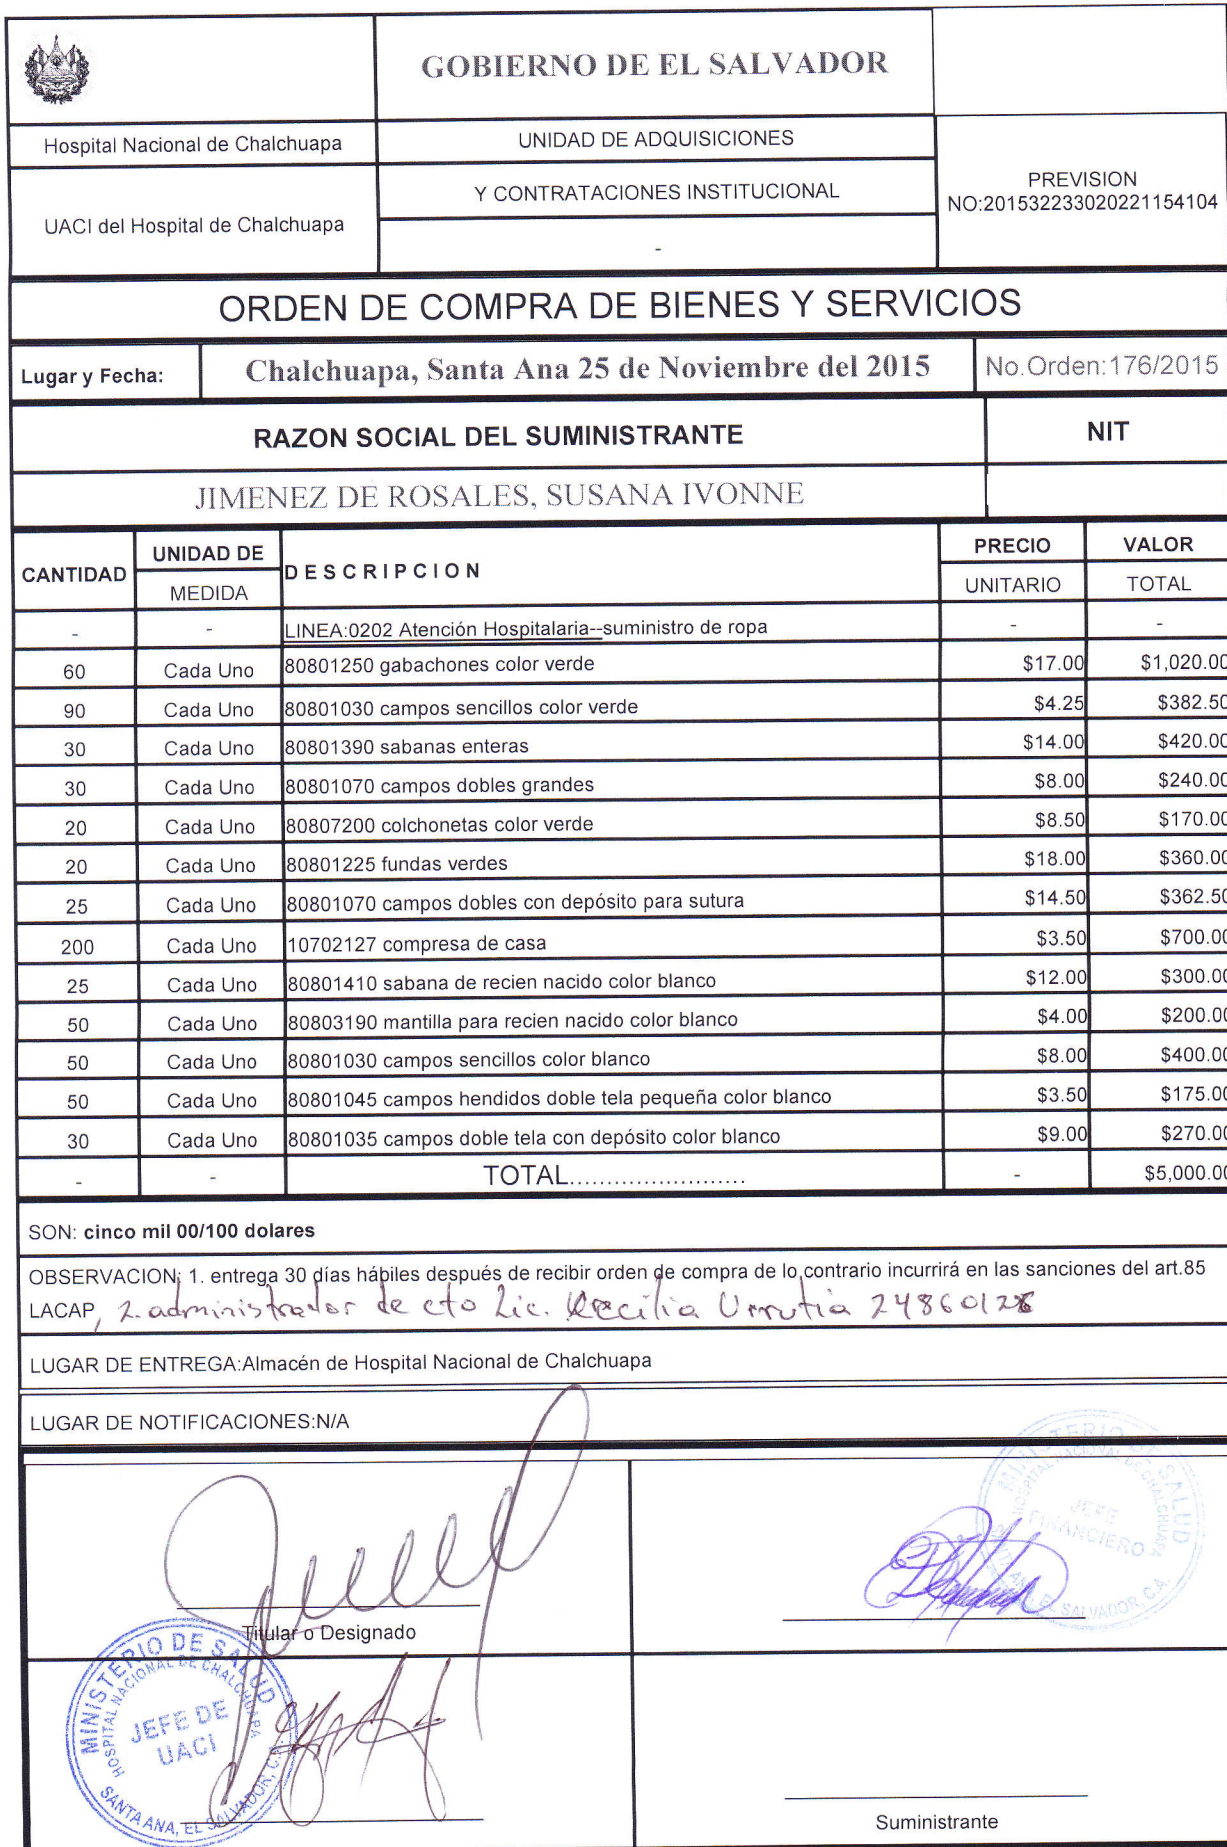 GOBIERNO DE EL SALVADOR
Hospital Nacional de Chalchuapa
UNIDAD DE ADQUISICIONES
UACI del Hospital de Chalchuapa
Y CONTRATACIONES INSTITUCIONAL
-
PREVISION
NO:201532233020221154104
ORDEN DE COMPRA DE BIENES Y SERVICIOS
Lugar y Fecha: Chalchuapa, Santa Ana 25 de Noviembre del 2015 No.Orden:176/2015
RAZON SOCIAL DEL SUMINISTRANTE NIT
JIMENEZ DE ROSALES, SUSANA IVONNE
CANTIDAD UNIDAD DE MEDIDA DESCRIPCION PRECIO UNITARIO VALOR TOTAL
- - LINEA:0202 Atención Hospitalaria--suministro de ropa - -
60 Cada Uno 80801250 gabachones color verde $17.00 $1,020.00
90 Cada Uno 80801030 campos sencillos color verde $4.25 $382.50
30 Cada Uno 80801390 sabanas enteras $14.00 $420.00
30 Cada Uno 80801070 campos dobles grandes $8.00 $240.00
20 Cada Uno 80807200 colchonetas color verde $8.50 $170.00
20 Cada Uno 80801225 fundas verdes $18.00 $360.00
25 Cada Uno 80801070 campos dobles con depósito para sutura $14.50 $362.50
200 Cada Uno 10702127 compresa de casa $3.50 $700.00
25 Cada Uno 80801410 sabana de recien nacido color blanco $12.00 $300.00
50 Cada Uno 80803190 mantilla para recien nacido color blanco $4.00 $200.00
50 Cada Uno 80801030 campos sencillos color blanco $8.00 $400.00
50 Cada Uno 80801045 campos hendidos doble tela pequeña color blanco $3.50 $175.00
30 Cada Uno 80801035 campos doble tela con depósito color blanco $9.00 $270.00
- - TOTAL........................ - $5,000.00
SON: cinco mil 00/100 dolares
OBSERVACION: 1. entrega 30 días hábiles después de recibir orden de compra de lo contrario incurrirá en las sanciones del art.85
LACAP, 2. administrador de cto Lic. Cecilia Urrutia
LUGAR DE ENTREGA:Almacén de Hospital Nacional de Chalchuapa
LUGAR DE NOTIFICACIONES:N/A
MINISTERIO DE SALUD
HOSPITAL NACIONAL DE CHALCHUAPA
JEFE
FINANCIERO
SANTA ANA, EL SALVADOR, C.A.
Titular o Designado
MINISTERIO DE SALUD
HOSPITAL NACIONAL DE CHALCHUAPA
JEFE DE
UACI
SANTA ANA, EL SALVADOR, C.
Suministrante